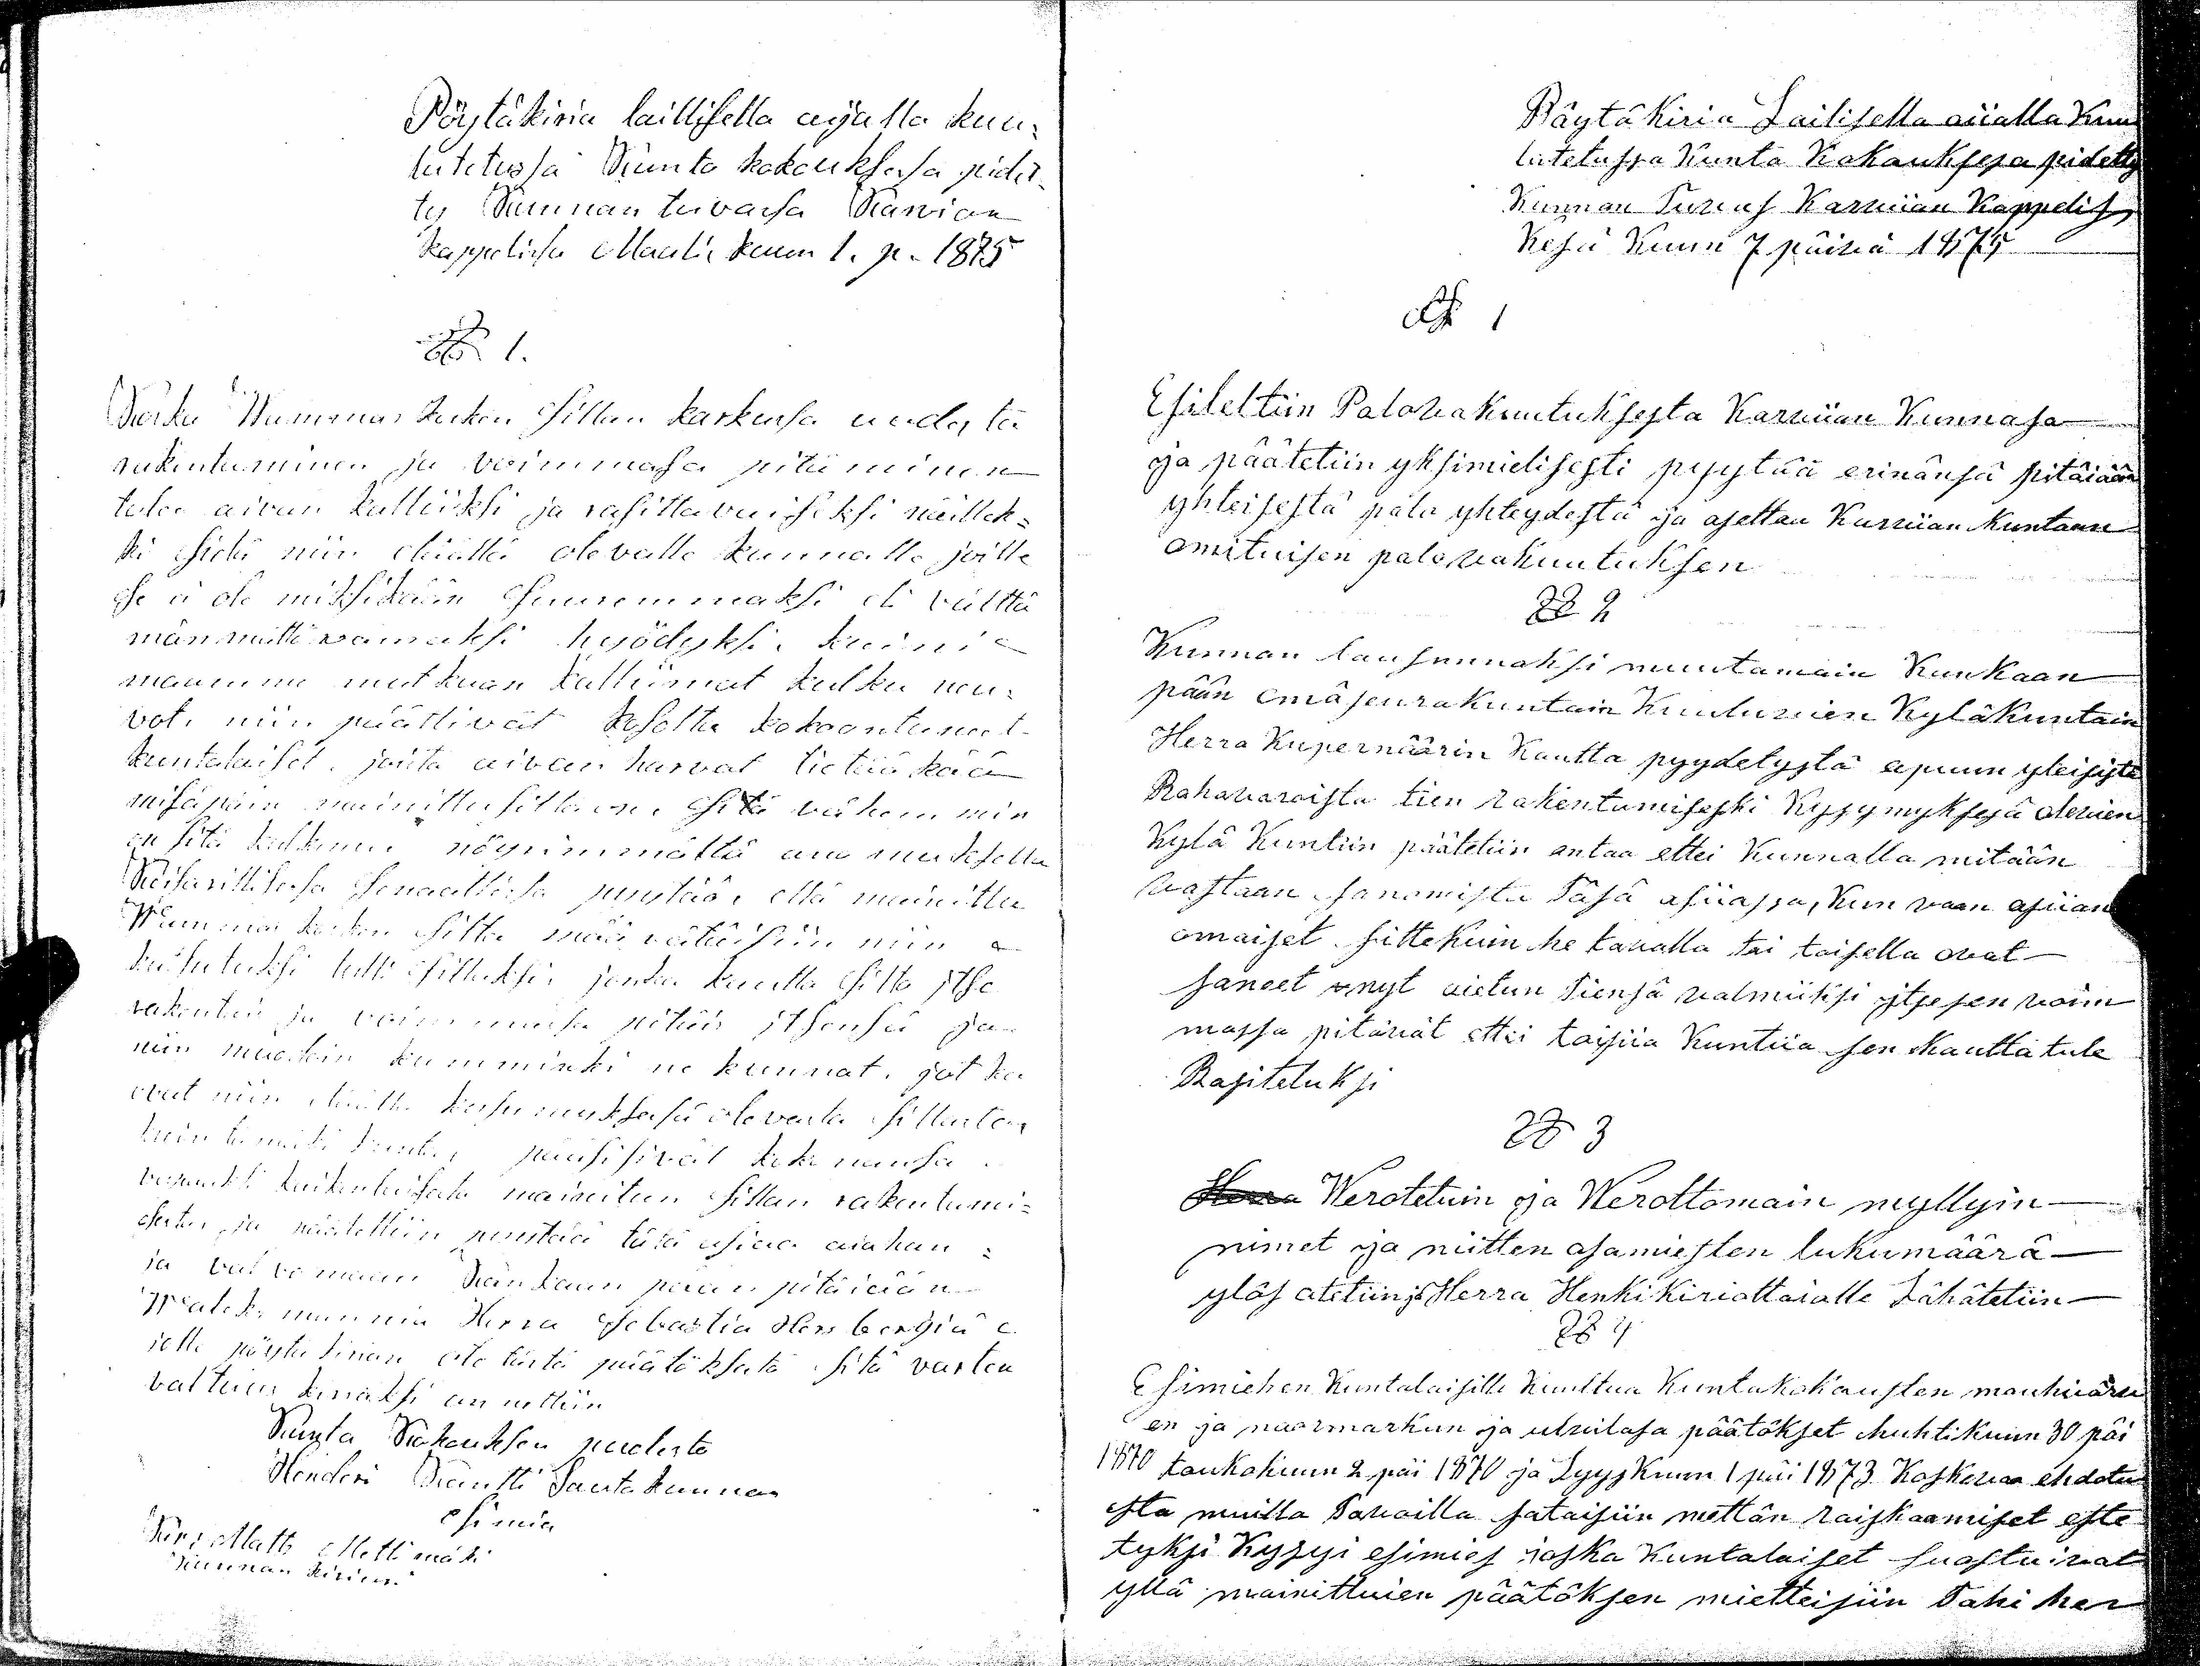 Pöytäkiria laillisella ajalla kuu-
lutetussa Kunta kokouksessa pidet-
ty Kunnan tuvassa Karvian
kappelissa Maalis kuun 1. p. 1875
§ 1.
Wummas kosken sillan uudesta
rakentaminen ja voimmasa pitäminen
tulee aivan kalliiksi ja rasittavaiseksi näillek-
ki niin olevalle kunnalle joille
se ei ole miksikään suuremmaksi eli välttä
mättömämmäksi hyödyksi, kuin
mutkaan kalliimat kulku neu-
vot. niin päättivät kokoontunet
kuntalaiset, joista aivan harvat tietää kää
misäpäin mainittu silta on, sitä vähemmin
on sitä kulkenu nöyrimmättä anomuksella
Keisarillisessa Senaattissa pyytää, että mainittu
Wummas kosken silta määrätäisiin niin
kutsutuksi tulli silluksi, jonka kautta silta itse
rakentais ja voimmassa pitäis itsensä ja
niin muodoin kumminki ne kunnat, jotka
ovat niin kysymyksesä olevasta sillasta
kuin kunta, pääsisivät kokonansa
kaikenlaisesta mainitun sillan rakentami-
sesta, ja päätettiin pyytää tätä asiaa ajahan
ja valvomaan Kankaan pään pitäjään
Herra Sebastia
jolle pöytäkirian ote tästä päätöksestä sitä varten
valtuus kirjaksi annettiin
Kunta Kokouksen puolesta
Hendri Kantti Santakunnas
esimies
Kirj Matti Mettimäki
Kunnan kirjuri
Päytäkiria Lailisella aiialla Kuu
lutetussa Kunta Kokauksesa pidetty
Kunnan Tuvas Karwiian Kappelis,
Kesä Kuun 7 päivä 1875
§ 1
Esiteltiin Palovakuutuksesta Karwiian Kunnasa
ja päätetiin yksimielisesti pyytää erinänsä pitäiään
yhteisestä palo yhteydestä ja asettaa Karwiian Kuntaan
omituisen palovakuutuksen
§ 2
Kunnan lausunnoksi muutamain Kankaan
pään emäseurakuntain Kuuluvien Kyläkuntain
Herra Kupernäärin Kautta pyydetystä apuun yleisistä
Rahavaroista tien rakentamiseski Kysymyksesä olevien
Kylä Kuntiin päätetiin antaa ettei Kunnalla mitään
vastaan sanomista Täsä asiiassa, Kun vaan asiian
omaiset sittekuin he tavalla tai toisella ovat
saneet nyt aietun Tiensä valmiiksi itse sen voim
massa pitävät ettei toisiia Kuntiia sen Kautta tule
Rasiteluksi
§ 3
Herra Werotetuin ja Werottomain myllyin
nimet ja niitten asamiesten lukumäärä
ylös otetiin ja Herra Henkikiriottaialle Lähätetiin
§ 4
Esimiehen Kuntalaisille Kuultua Kuntakokausten mouhiiärw
en ja naormarkun ja ulvilasa päätökset Huhtikuun 30 päi
1870 toukokuun 2 päi 1870 ja Syysкuun 1 päi 1873 Koskevaa ehdotu
sta muilla Tavoilla sataisiin mettän raiskaamiset este
tyksi Kysyi esimies joska Kuntalaiset suostuivat
yllä mainittuien päätöksen mietteisiin Tahi her